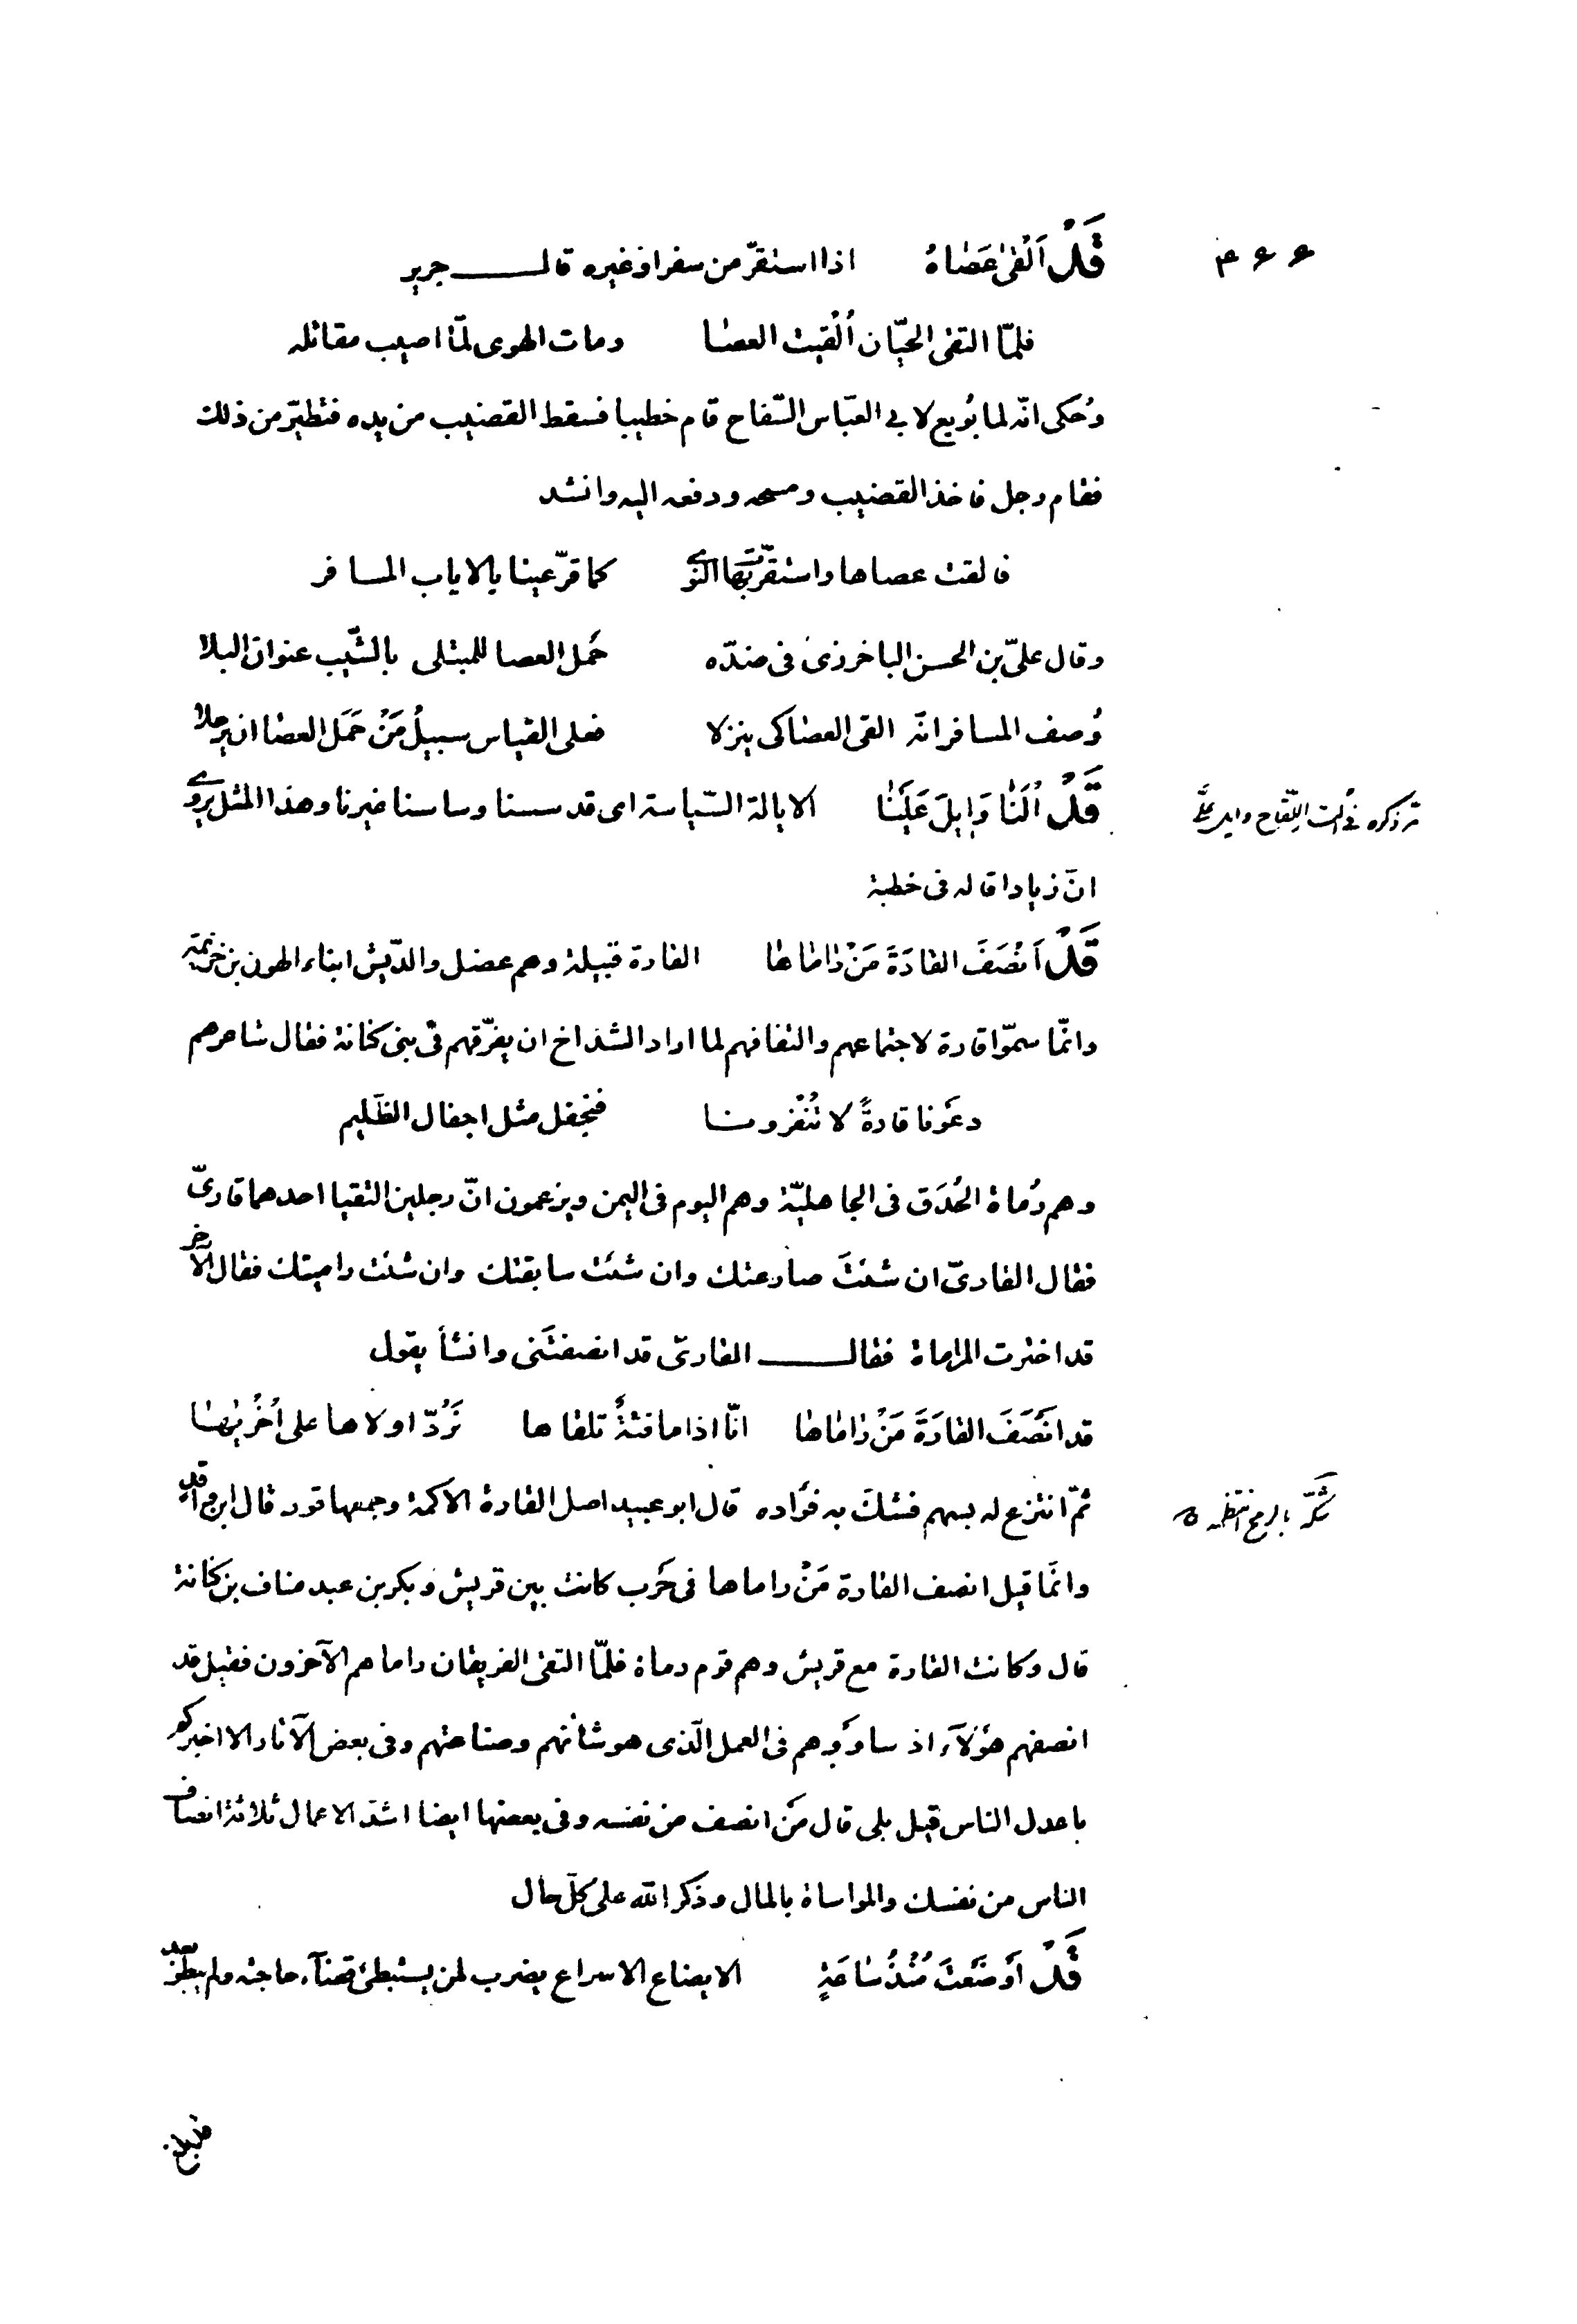 ۴۶۶
قَدْ اَلْقىٰ عَصٰاهُ اذا استقرّ من سفر او غيره قالــــ جرير
فلمّا التقى الحيّان اُلقيت العصٰا ومات الهوى لمّا اصيب مقاتله
وحُكى انّه لما بُويع لابى العبّاس السّفاح قام خطيبا فسقط القضيب من يده فتطيّر من ذلك
فقام رجل فاخذ القضيب ومسحه ودفعه اليه وانشد
فالقت عصاها واستقرّت بها النّوى كما قرّ عينا بالاياب المسافر
وقال علىّ بن الحسن الباخرزى فى ضدّه حَمل العصا للمبتلى بالشّيب عنوان البلا
وُصف المسافر انّه القى العصٰا كى ينزلا فعلى القياس سبيلُ مَنْ حَمَل العصٰا ان يرحلا
قَدْ اُلْنٰا وَاِيلَ عَلَيْنٰا الايالة السّياسة اى قد سسنا وساسنا غيرنا وهذا المثل يروى
انّ زيادا قاله فى خطبة
قَدْ اَنْصَفَ القارَةَ مَنْ رٰامٰاهٰا القارة قبيلة وهم عضل والدّيش ابناء الهون بن خزيمة
وانّما سمّوا قارة لاجتماعهم والتفافهم لما اراد الشداخ ان يفرّقهم فى بنى كنانة فقال شاعرهم
دعَونا قارةً لا تُنْفرونــا فنجفل مثل اجفال الظّليم
وهم رُماة الحُدَق فى الجاهليّة وهم اليوم فى اليمن ويزعمون انّ رجلين التقيا احدهما قارىّ
فقال القارىّ ان شئتَ صارعتك وان شئت سابقتك وان شئت راميتك فقال الآخر
قد اخترت المراماة فقالــــ القارىّ قد انصفتَنى وانشأ يقول
قد اَنْصَفَ القارَةَ مَنْ رٰامٰاهٰا انّا اذا ما فئةٌ نلقاها نَرُدّ اولاها على اُخْرٰيٰهٰا
ثمّ انتزع له بسهم فشكّ به فؤاده قال ابو عبيد اصل القارة الاكمة وجمعها قور قال ابن واقد
وانّما قيل انصف القارة مَنْ راماها فى حَرب كانت بين قريش وبكر بن عبد مناف بن كنانة
قال وكانت القارة مع قريش وهم قوم رماة فلمّا التقى الفريقان راماهم الآخرون فقيل قد
انصفهم هؤلآء اذ ساووهم فى العمل الّذى هو شأنهم وصناعتهم وفى بعض الآثار الا اخبركم
باعدل الناس قيل بلى قال مَن انصف من نفسه وفى بعضها ايضا اشدّ الاعمال ثلاثة انصاف
الناس من نفسك والمواساة بالمال وذكر الله على كلّ حال
قَدْ اَوضَعْتَ مُنْذُ سٰاعَةٍ الايضاع الاسراع يضرب لمن يستبطئ قضآء حاجته ولم يبطؤ بعد
مرّ ذكره فى الت اللّقاح وايل علىّ
شكّه بالرمح انتظمه ص